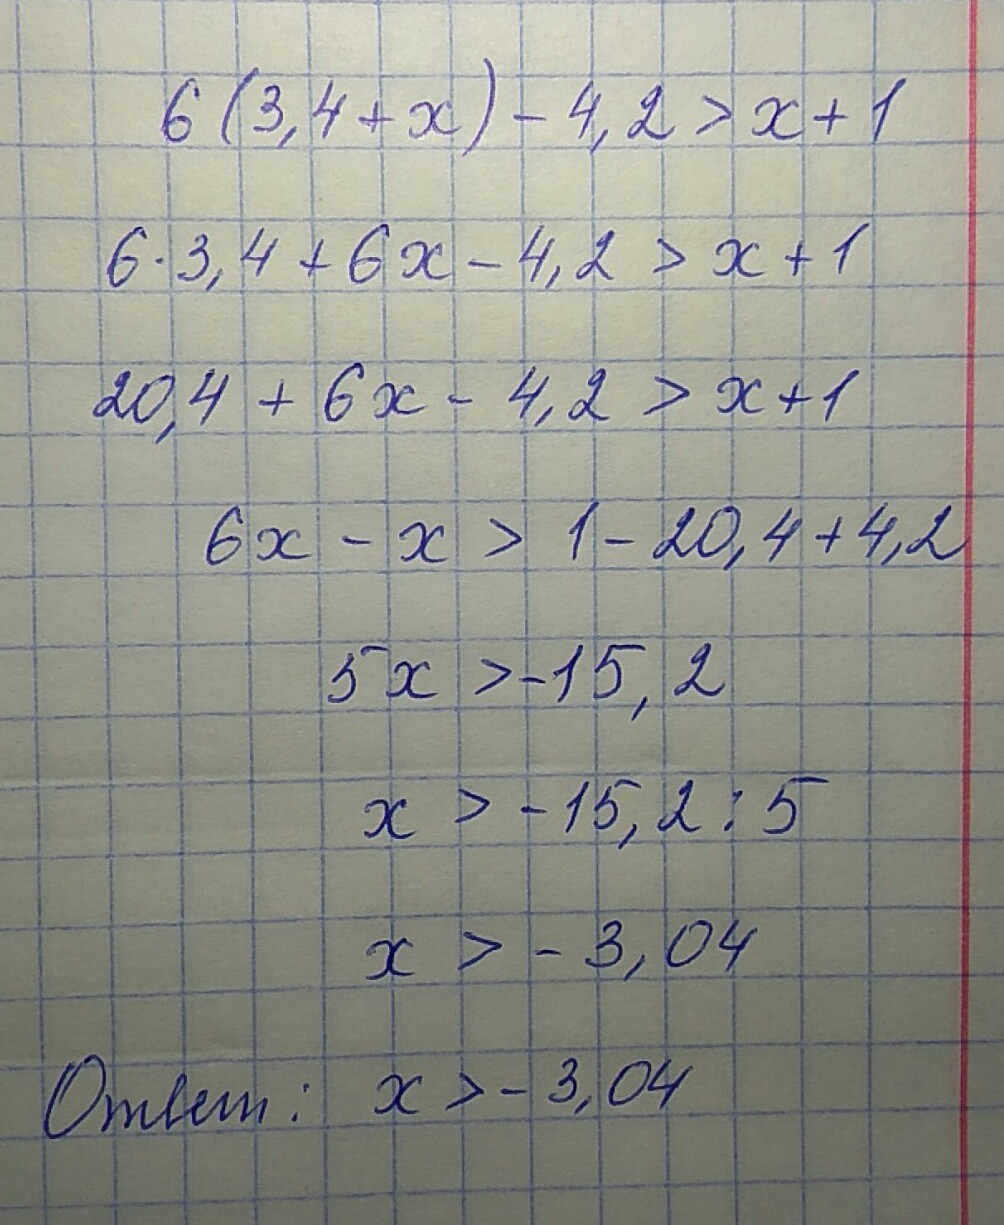 6(3,4+x)-4,2>x+1
6·3,4+6x-4,2>x+1
20,4+6x-4,2>x+1
6x-x>1-20,4+4,2
5x>-15,2
x>-15,2:5
x>-3,04
Ответ: x>-3,04